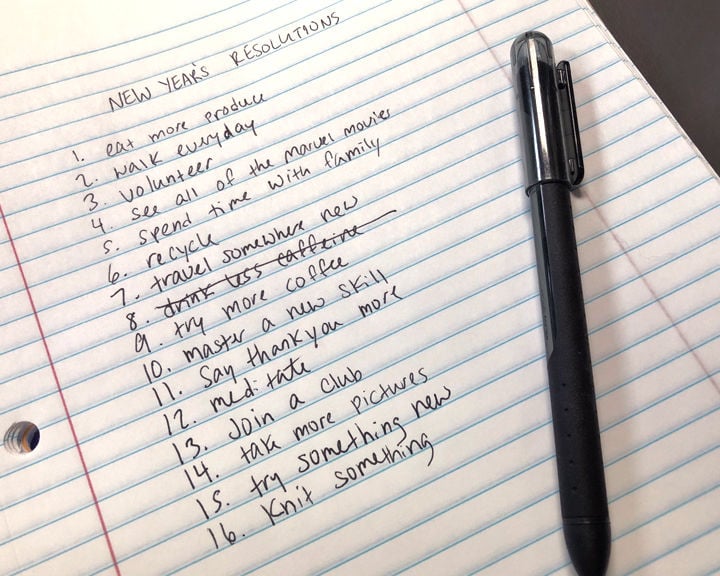 NEW YEAR'S RESOLUTIONS
1. eat more produce
2. walk everyday
3. volunteer
4. see all of the marvel movies
5. spend time with family
6. recycle
7. travel somewhere new
8. drink less caffeine
9. try more coffee
10. master a new skill
11. say thank you more
12. meditate
13. Join a club
14. take more pictures
15. try something new
16. Knit something